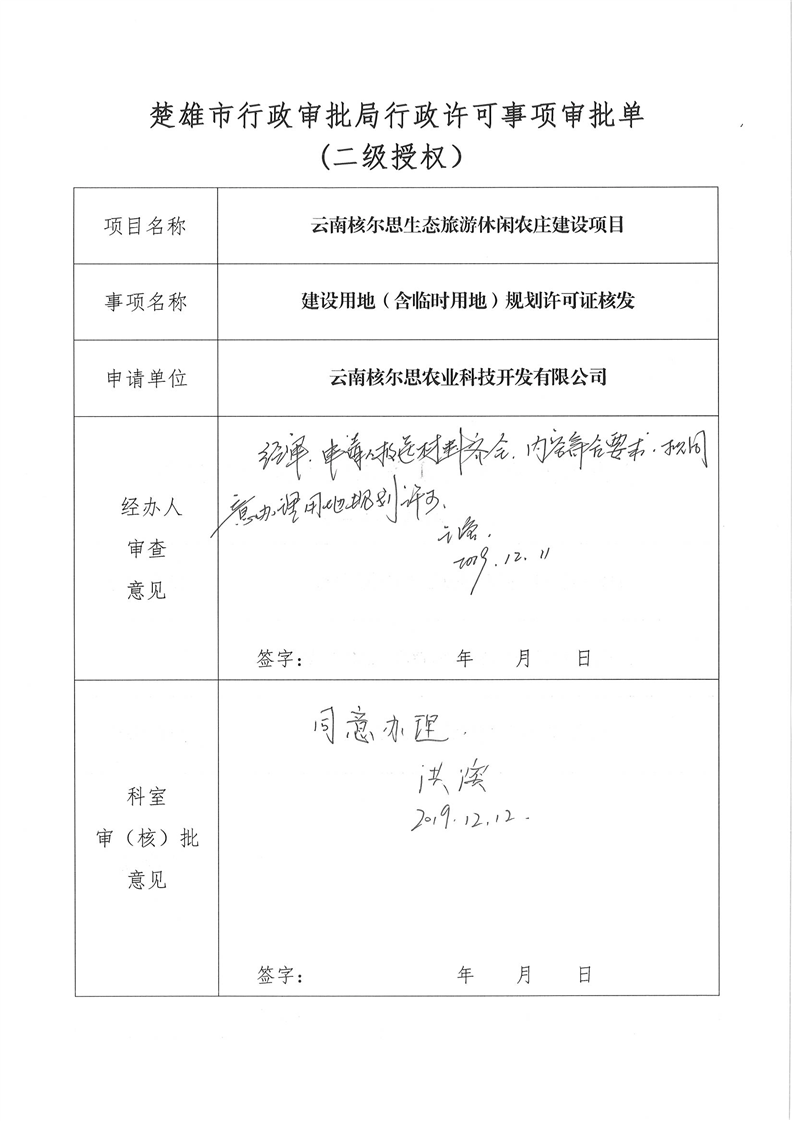 楚雄市行政审批局行政许可事项审批单
(二级授权）
项目名称
云南核尔思生态旅游休闲农庄建设项目
事项名称
建设用地（含临时用地）规划许可证核发
申请单位
云南核尔思农业科技开发有限公司
经办人
审查
意见
经审，申请人报送材料齐全，内容符合要求，拟同
意办理用地规划许可。
2019.12.11
签字： 年 月 日
科室
审（核）批
意见
同意办理.
洪滨
2019.12.12.
签字： 年 月 日